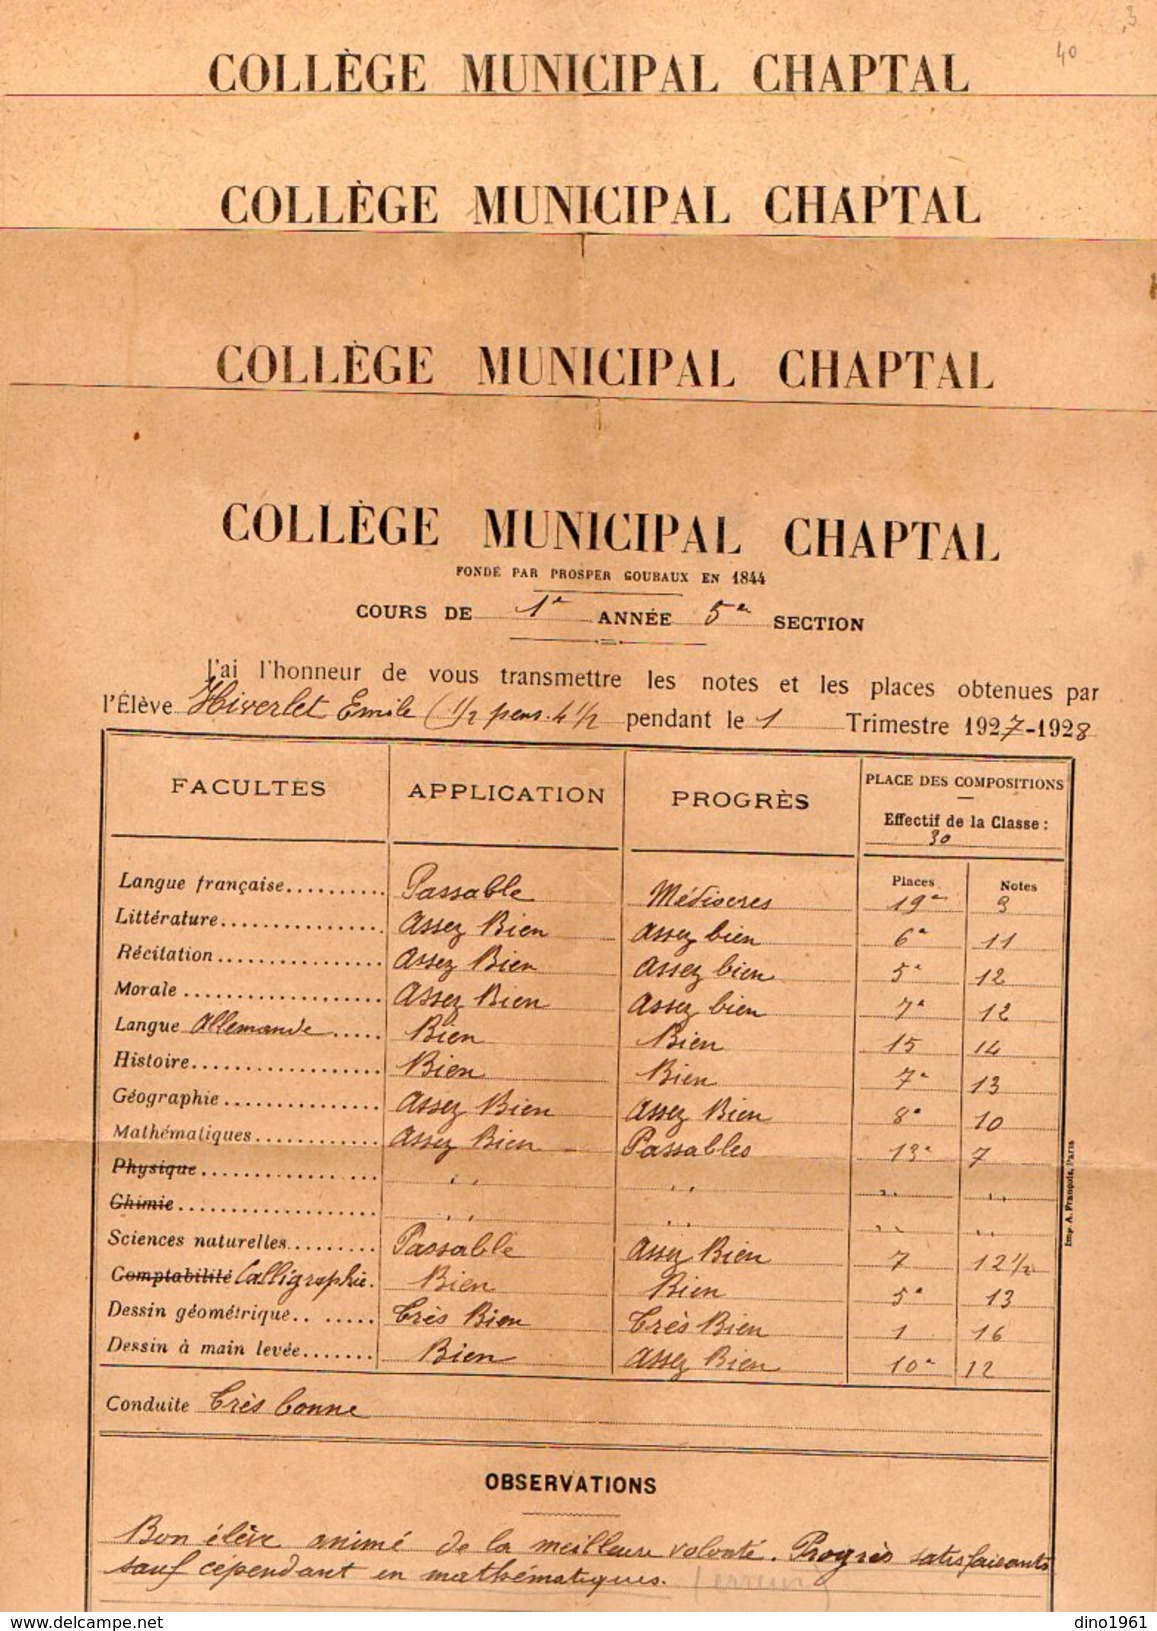 3
40
COLLÈGE MUNICIPAL CHAPTAL
COLLÈGE MUNICIPAL CHAPTAL
COLLÈGE MUNICIPAL CHAPTAL
COLLÈGE MUNICIPAL CHAPTAL
FONDÉ PAR PROSPER GOUBAUX EN 1844
COURS DE 1e ANNÉE 5e SECTION
J'ai l'honneur de vous transmettre les notes et les places obtenues par
l'Élève Hiverlet Emile (1/2 pens. 4 1/2 pendant le 1 Trimestre 1927-1928
FACULTÉS APPLICATION PROGRÈS PLACE DES COMPOSITIONS
Effectif de la Classe :
30
Places Notes
Langue française.......... Passable Médiocres 19e 9
Littérature................ Assez Bien Assez bien 6e 11
Récitation................ Assez Bien Assez bien 5e 12
Morale................... Assez Bien Assez bien 7e 12
Langue Allemande..... Bien Bien 15 14
Histoire................... Bien Bien 7e 13
Géographie............... Assez Bien Assez Bien 8e 10
Mathématiques............ Assez Bien Passables 13e 7
Physique.................. " " " "
Chimie................... " " " "
Sciences naturelles......... Passable Assez Bien 7 12 1/2
Comptabilité Calligraphie. Bien Bien 5e 13
Dessin géométrique.. ..... Très Bien Très Bien 1 16
Dessin à main levée....... Bien Assez Bien 10e 12
Imp A. François, Paris
Conduite Très bonne
OBSERVATIONS
Bon élève animé de la meilleure volonté. Progrès satisfaisants
sauf cépendant en mathématiques. (erreur)
www.delcampe.net
dino1961